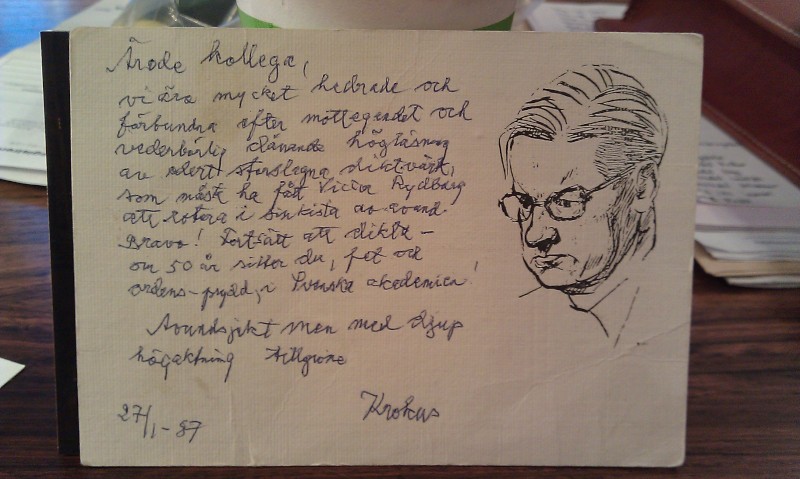 Ärade kollega,
vi äro mycket hedrade och
förbundna efter mottagandet och
vederbörlig dånande högläsning
av edert storslagna diktverk,
som måst ha fått Victor Rydberg
att rotera i sin kista av avund.
Bravo! Fortsätt att dikta –
om 50 år sitter du, fet och
ordens-prydd, i Svenska akademien!
Avundsjukt men med djup
högaktning
Krokus
27/1-87